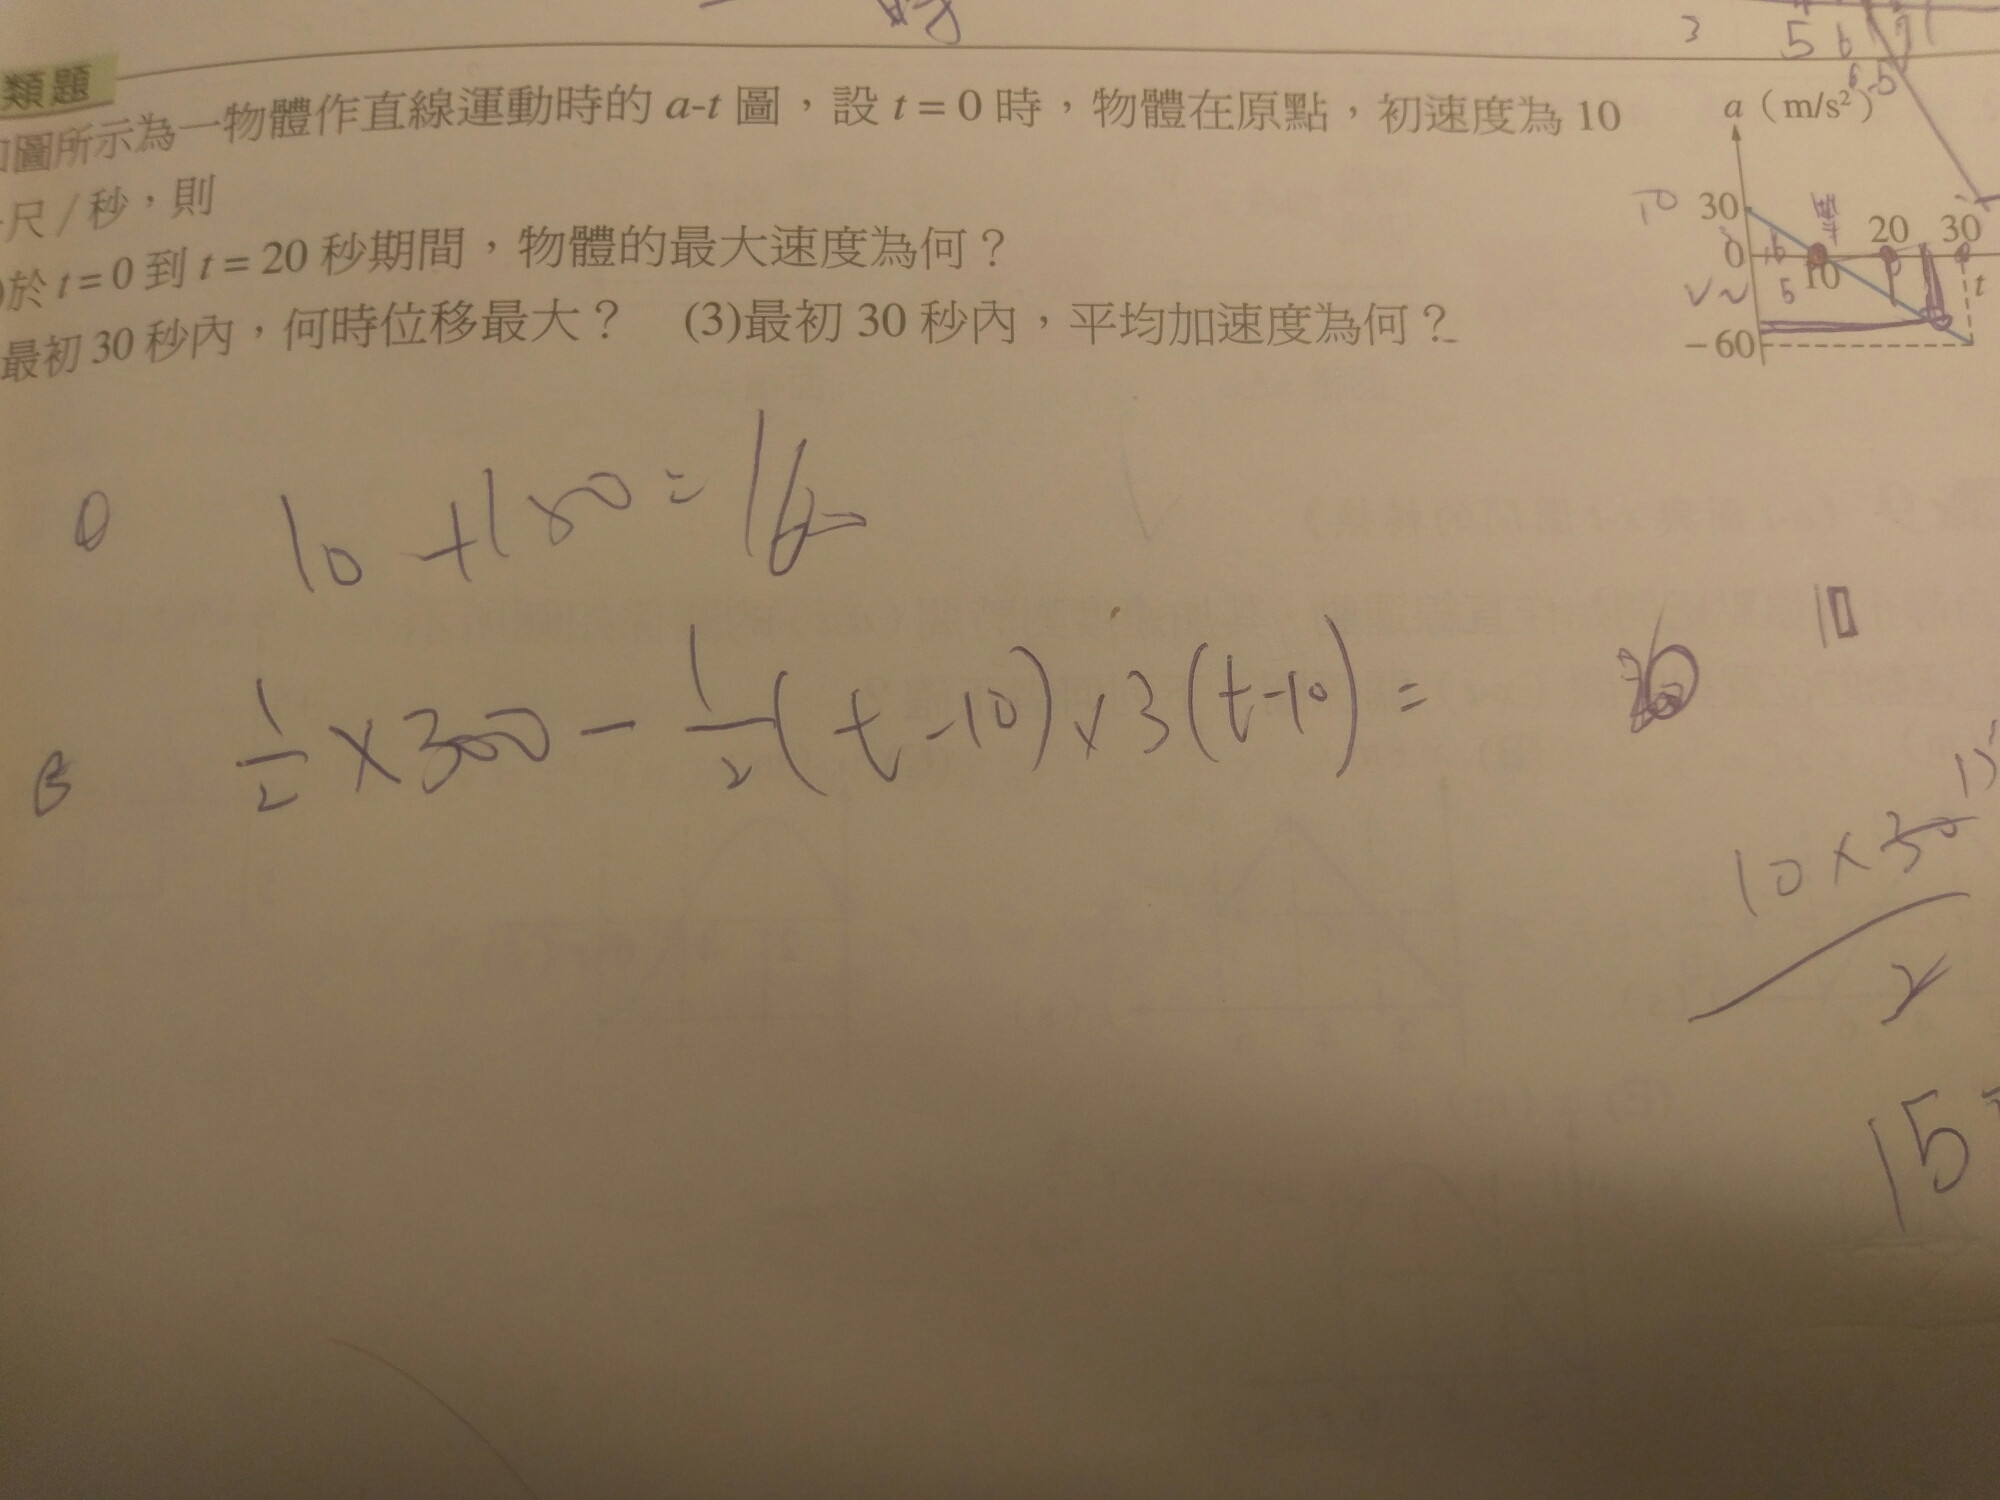 類題
圖所示為一物體作直線運動時的 a-t 圖，設 t = 0 時，物體在原點，初速度為 10
尺/秒，則
)於 t = 0 到 t = 20 秒期間，物體的最大速度為何？
最初 30 秒內，何時位移最大？ (3)最初 30 秒內，平均加速度為何？
a（m/s²）
30
0
10
20
30
t
-60
10 + 150 = 160
½ × 300 - ½ (t-10) × 3 (t-10) =
10
10 × 30
2
15